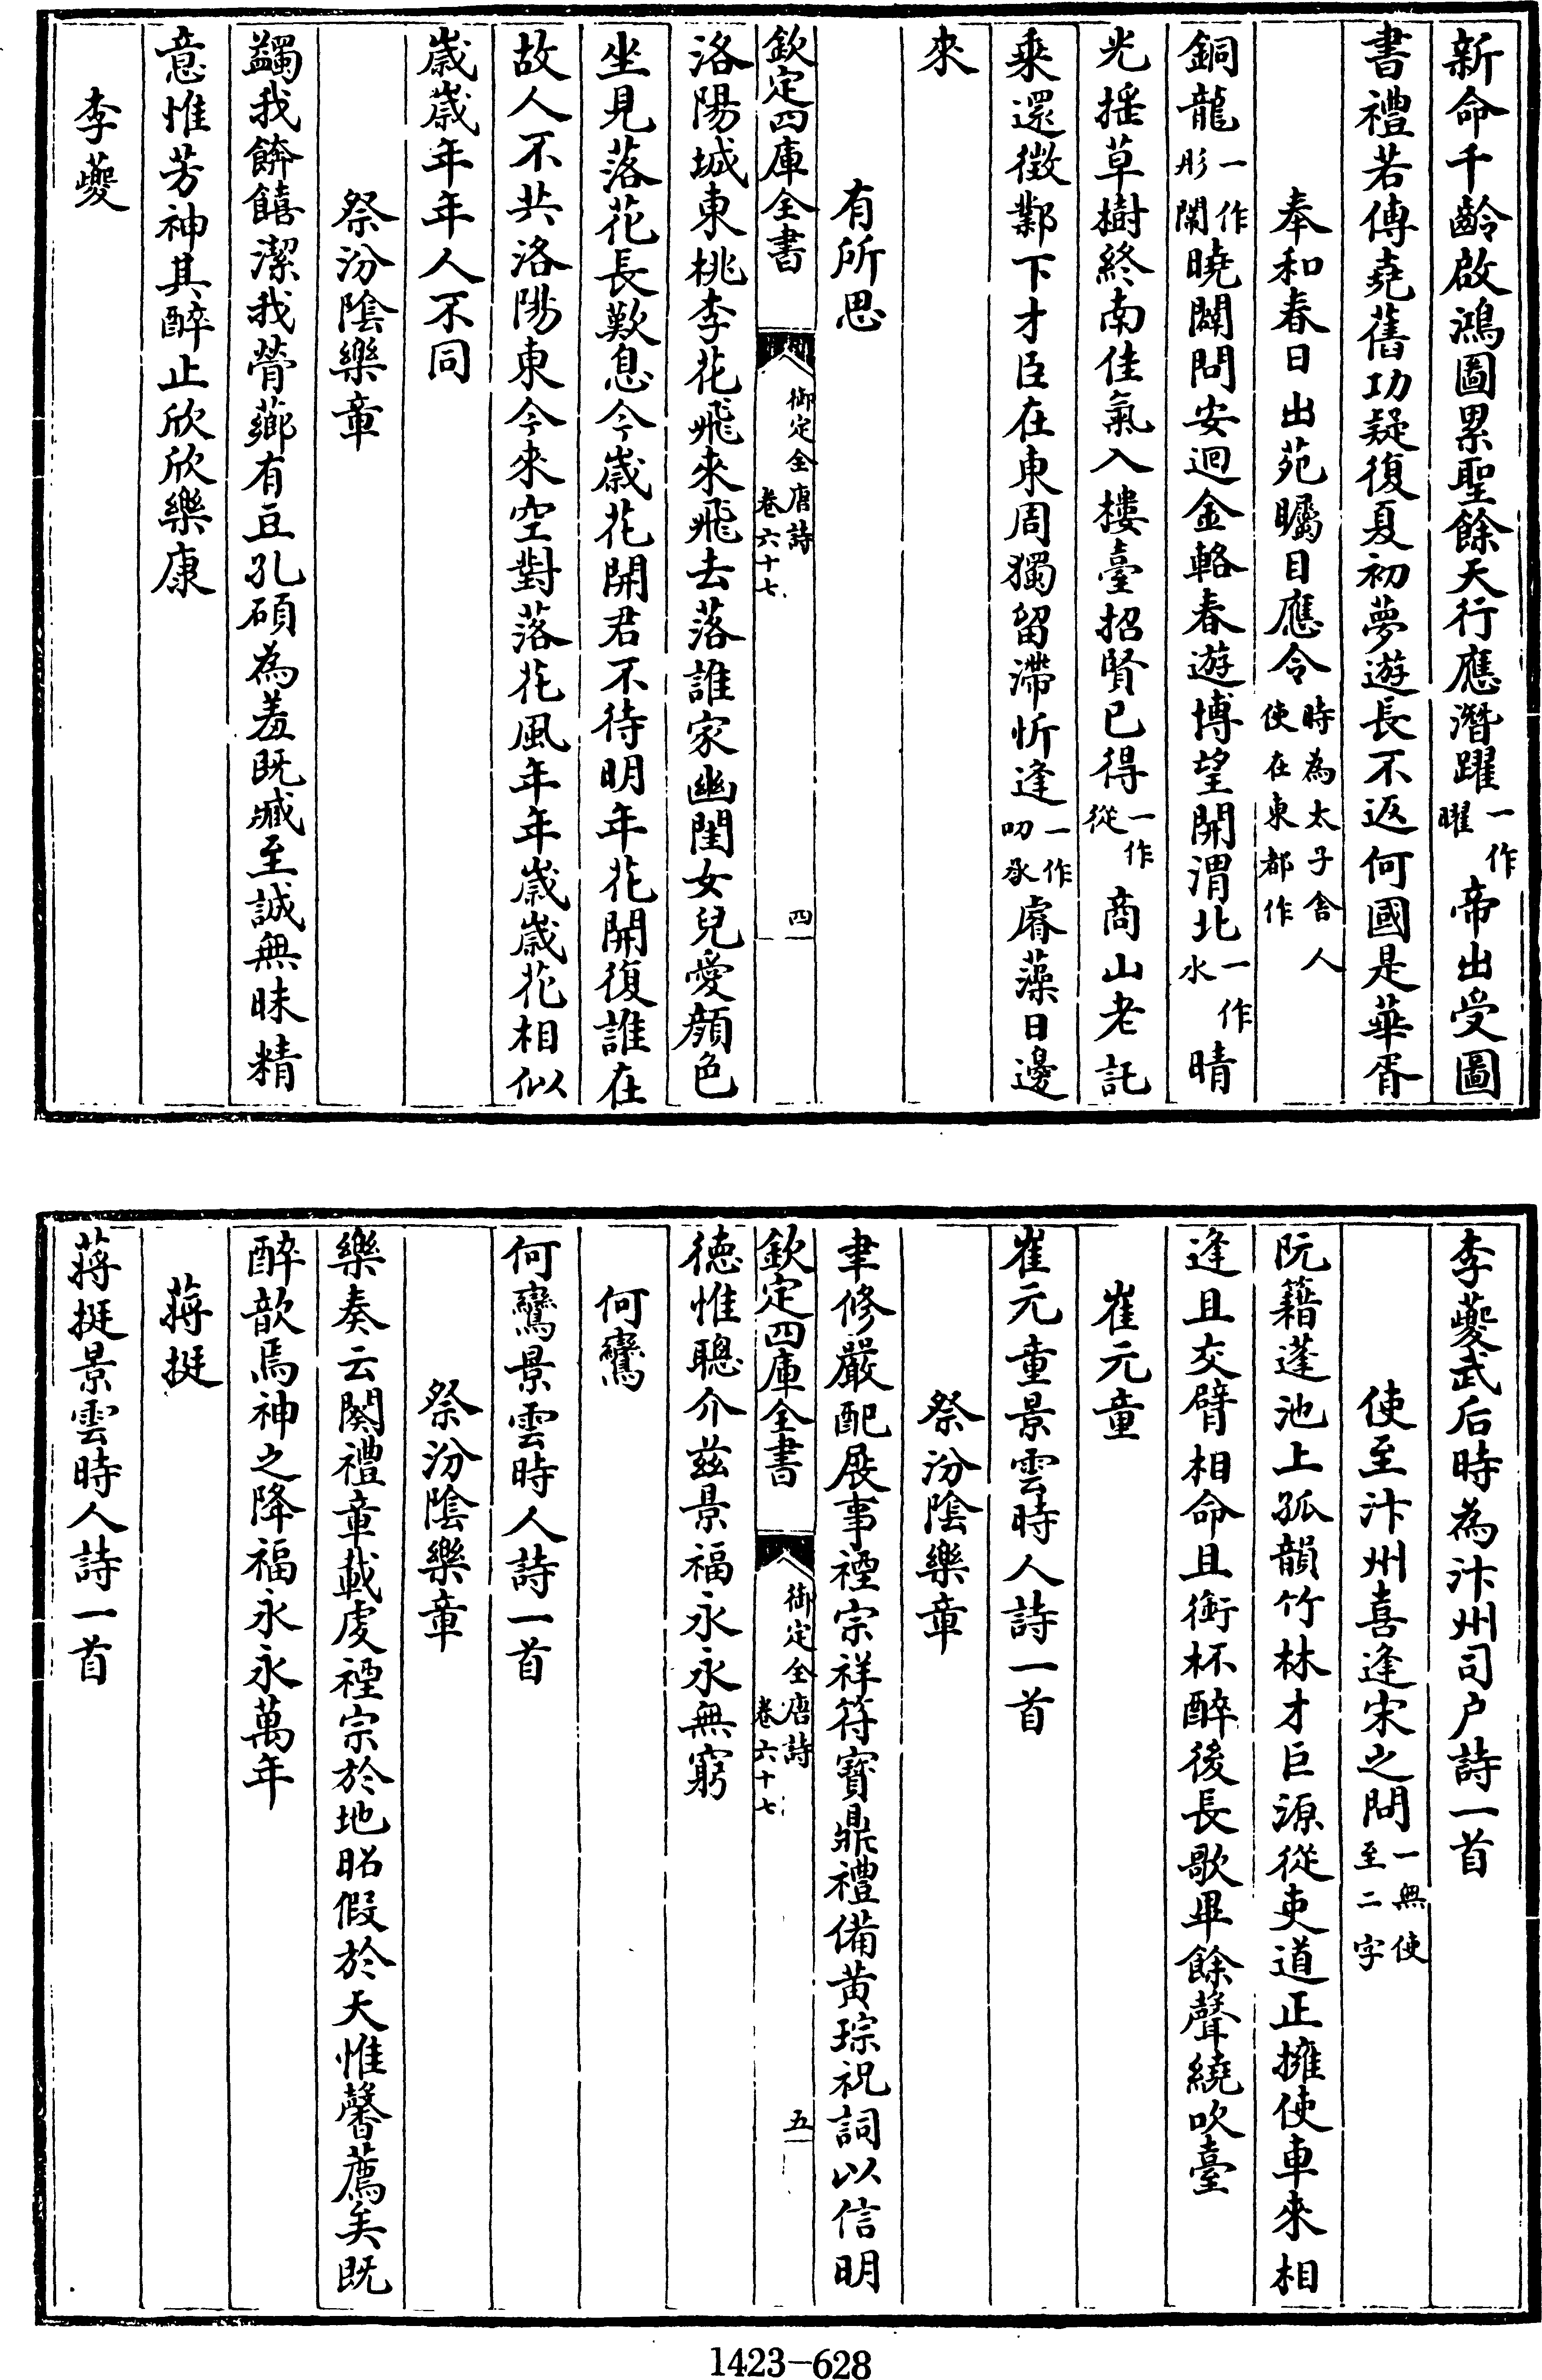 新命千齡啟鴻圖累聖餘天行應潛躍一作曜帝出受圖
書禮若傅堯舊功疑復夏初夢遊長不返何國是華胥
奉和春日出苑矚目應令時為太子舍人使在東都作
銅龍一作彤闈曉闢問安迴金輅春遊博望開渭北一作水晴
光搖草樹終南佳氣入樓臺招賢已得一作從商山老託
乘還徵鄴下才臣在東周獨留滯忻逢一作叨承睿藻日邊
來
有所思
欽定四庫全書 御定全唐詩卷六十七 四
洛陽城東桃李花飛來飛去落誰家幽閨女兒愛顏色
坐見落花長歎息今歲花開君不待明年花開復誰在
故人不共洛陽東今來空對落花風年年歲歲花相似
歲歲年年人不同
祭汾陰樂章
蠲我餴饎潔我膋薌有豆孔碩為羞既臧至誠無昧精
意惟芳神其醉止欣欣樂康
李夔
李夔武后時為汴州司户詩一首
使至汴州喜逢宋之問一無使至二字
阮籍蓬池上孤韻竹林才巨源從吏道正擁使車來相
逢且交臂相命且銜杯醉後長歌畢餘聲繞吹臺
崔元童
崔元童景雲時人詩一首
祭汾陰樂章
聿修嚴配展事禋宗祥符寶鼎禮備黄琮祝詞以信明
欽定四庫全書 御定全唐詩卷六十七 五
德惟聰介兹景福永永無窮
何鸞
何鸞景雲時人詩一首
祭汾陰樂章
樂奏云闋禮章載虔禋宗於地昭假於天惟馨薦矣既
醉歆焉神之降福永永萬年
蔣挺
蔣挺景雲時人詩一首
1423-628